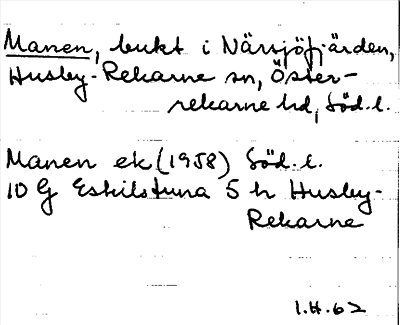 Manen, bukt i Närsjöfjärden,
Husby-Rekarne sn, Öster-
rekarne hd, Söd.l.
Manen ek (1958) Söd.l.
10 G Eskilstuna 5 h Husby-
Rekarne
1.H.62